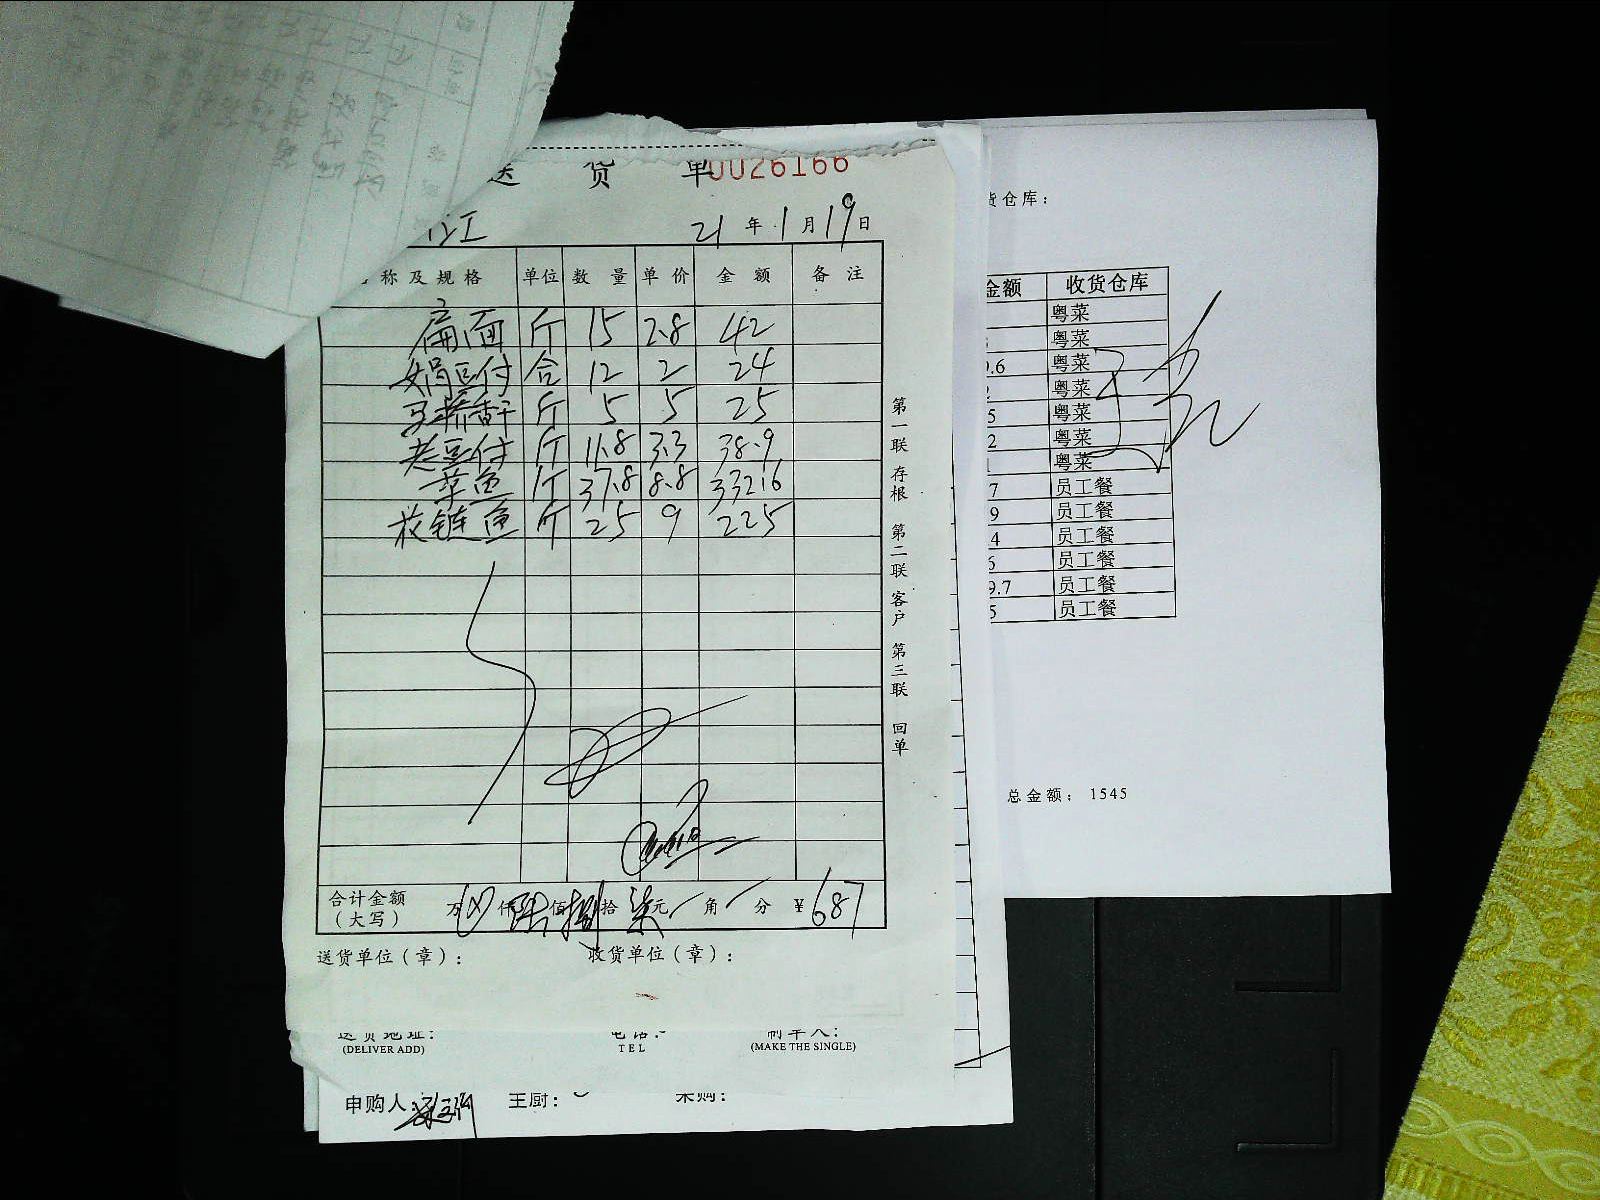 送 货 单 0026166
江 21 年 1 月 19 日
称及规格 单位 数量 单价 金额 备注
扁面 斤 15 2.8 42
娟豆付 合 12 2 24
马桥香干 斤 5 5 25
老豆付 斤 11.8 3.3 38.9
草鱼 斤 37.8 8.8 332.6
花链鱼 斤 25 9 225
合计金额
(大写) 万 仟 陆 佰 捌 拾 柒 元 角 分 ¥687
送货单位(章): 收货单位(章):
第一联 存根 第二联 客户 第三联 回单
送货地址: 电话: 制单人:
(DELIVER ADD) TEL (MAKE THE SINGLE)
申购人: 王厨: 采购:
货仓库:
金额 收货仓库
粤菜
粤菜
.6 粤菜
2 粤菜
5 粤菜
2 粤菜
粤菜
7 员工餐
9 员工餐
4 员工餐
6 员工餐
9.7 员工餐
5 员工餐
总金额: 1545